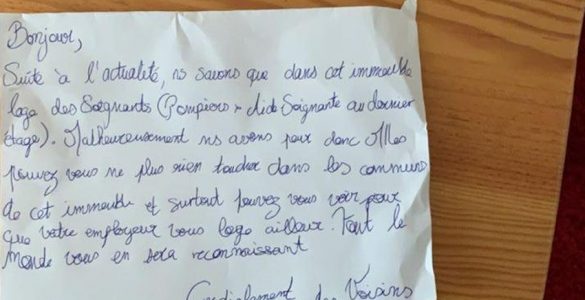 Bonjour,
Suite à l'actualité, ns savons que dans cet immeuble
loge des Soignants (Pompiers, Aide Soignante au dernier
étage). Malheureusement ns avons peur donc Mlles
pouvez vous ne plus rien toucher dans les communs
de cet immeuble et surtout pouvez vous voir pour
que votre employeur vous loge ailleurs. Tout le
monde vous en sera reconnaissant
Cordialement des Voisins